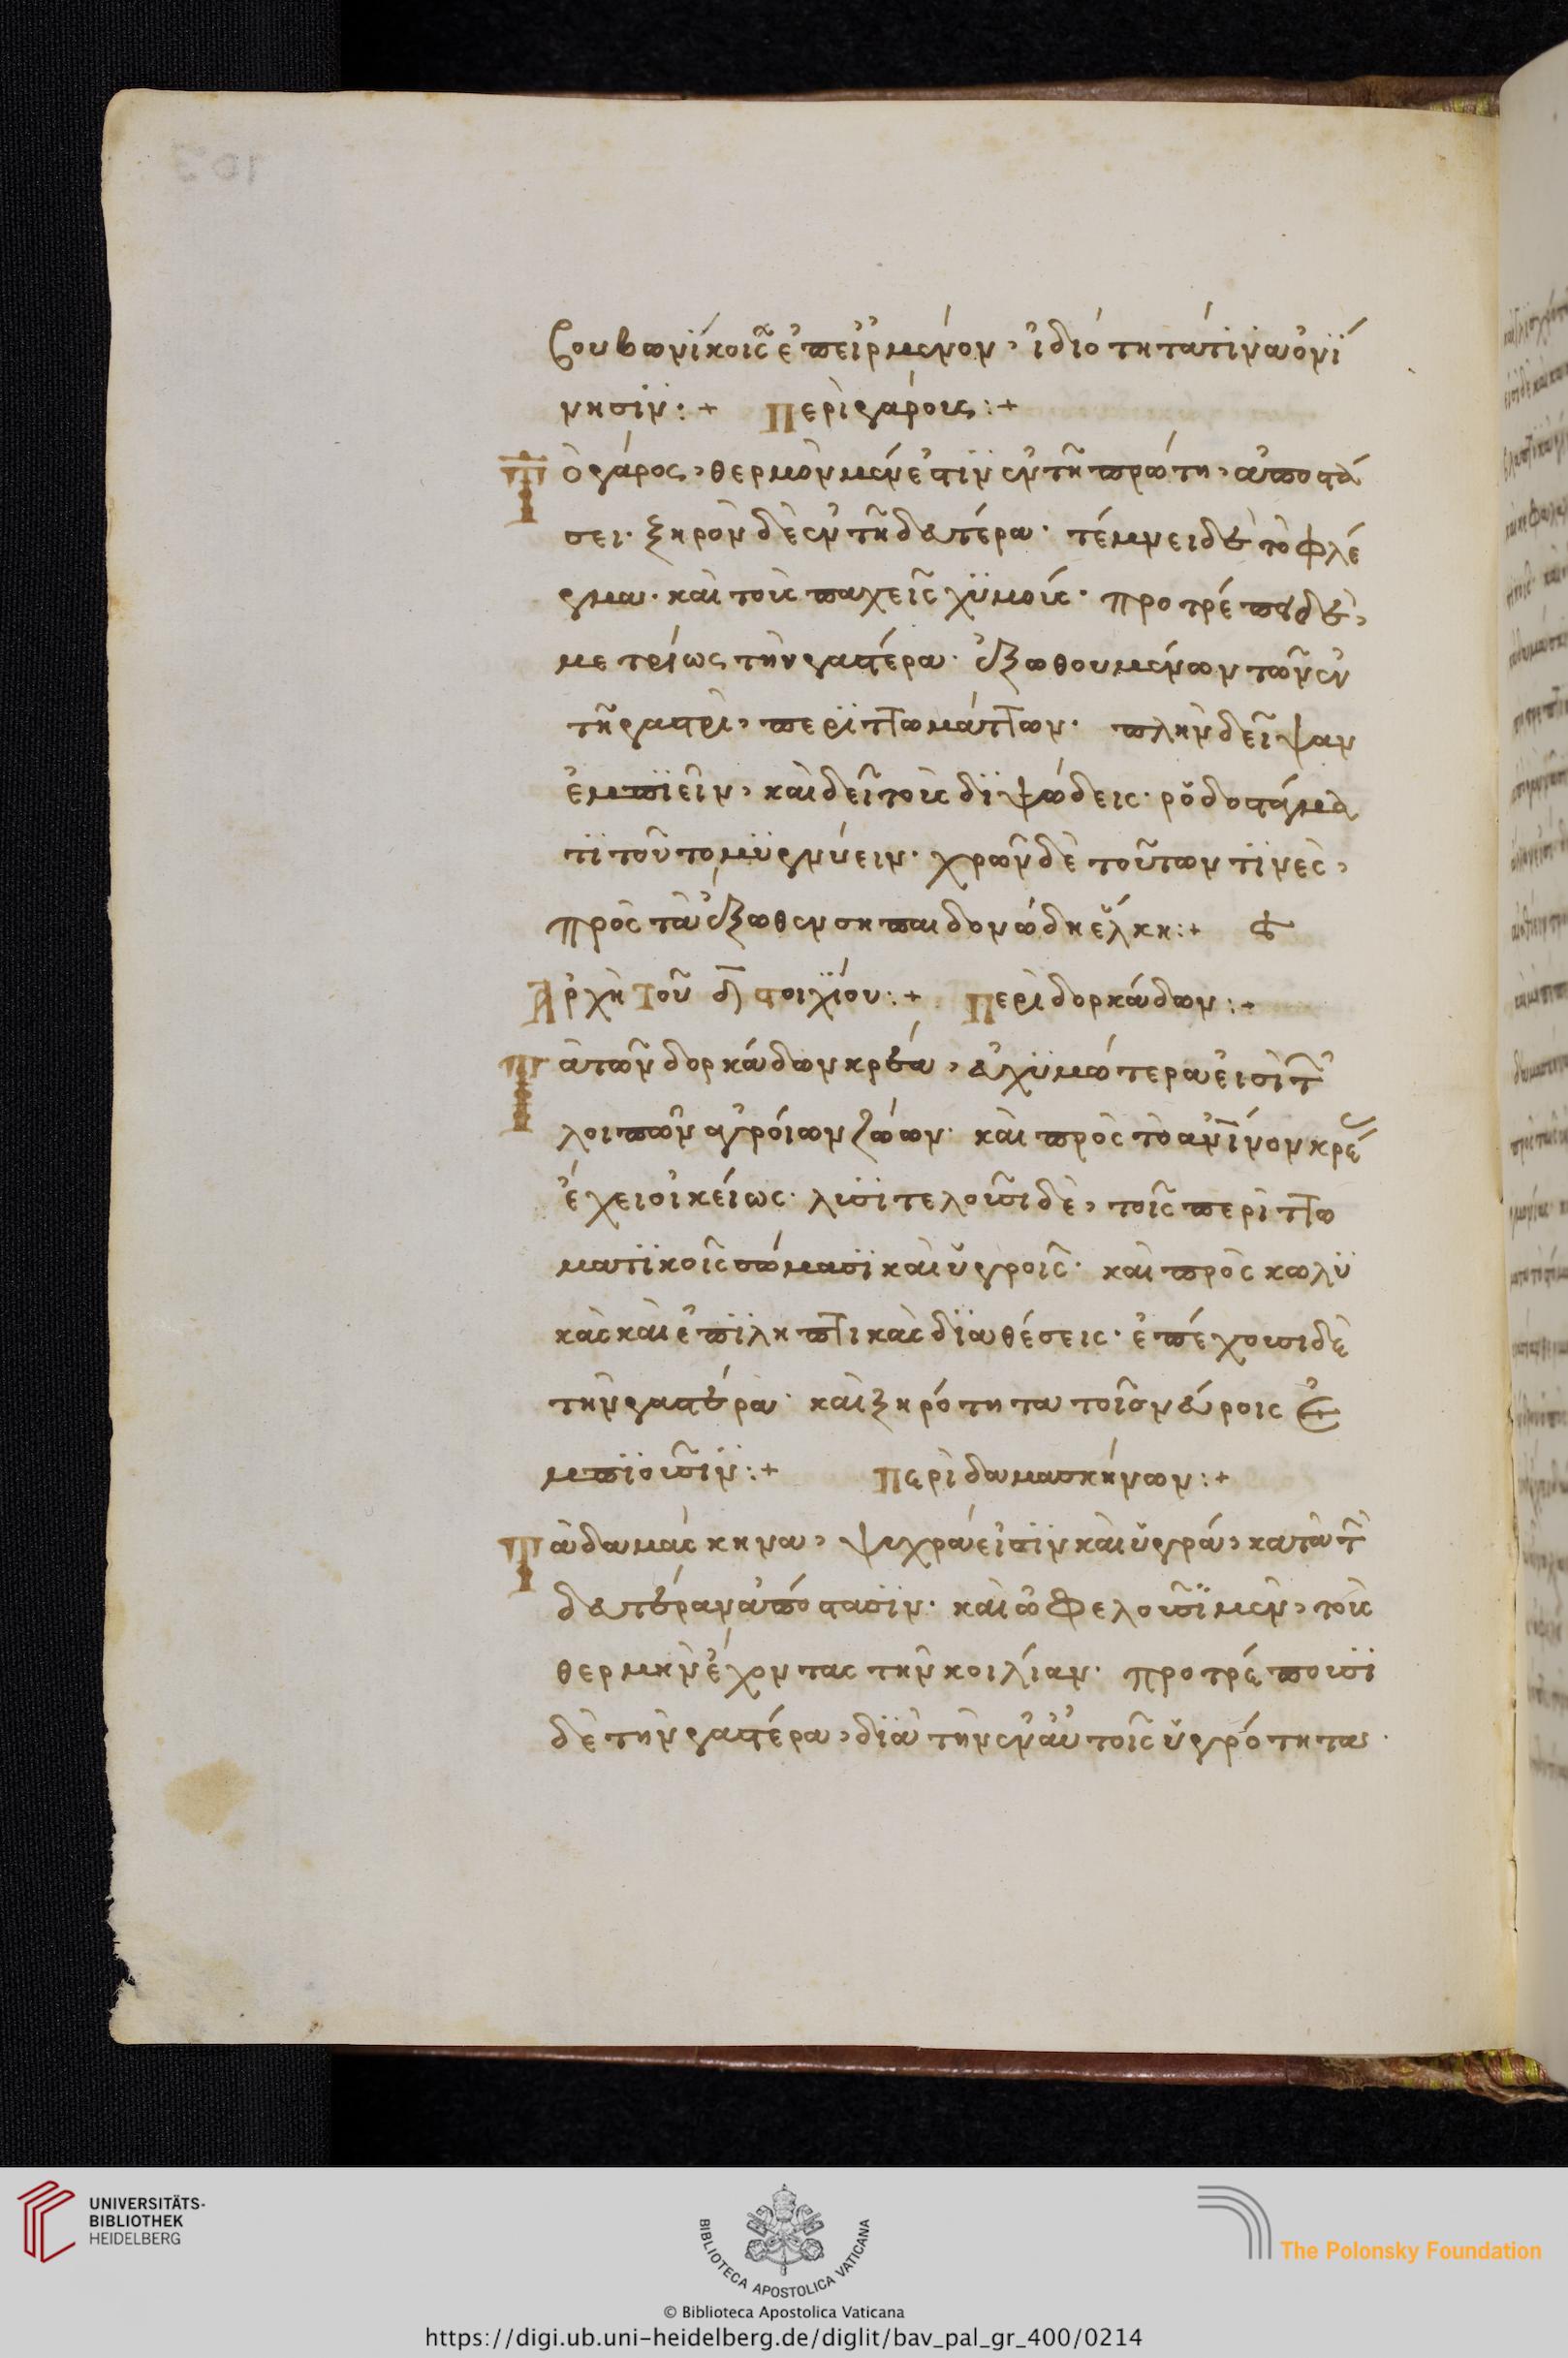 βουβωνίκοις ἐπειρμένον, ἰδιότητά τινα ὀνί
νησϊν:+ Περὶ γάρους:+
Τὸ γάρος, θερμὸν μέν ἐστϊν ἐν τῇ πρώτη, ἀποστά
σει. ξηρὸν δὲ ἐν τῆ δευτέρα. τέμνει δὲ τὸ φλέ
γμα. καὶ τοὺς παχεῖς χϋμούς. προτρέπει δὲ,
μετρίως τὴν γαστέρα. ἐξωθουμένων τῶν ἐν
τῆ γαστρὶ, περϊττωμάττων. πλὴν δεῖψαν
ἐμπϊεῖν, καὶ δεῖ τοὺς δϊψώδεις. ῥοδοστάγμα
τϊ τοῦτο μϋγνύειν. χρῶν δὲ τούτων τϊνὲς,
πρὸς τὰ ἔξωθεν σηπαιδονώδη ἕλκη:+
Ἀρχὴ Τοῦ δ στοιχϊου:+ Περὶ δορκάδων:+
Τὰ τῶν δορκάδων κρέα, εὐχϋμώτερα εἰσὶ τ
λοιπῶν ἀγρίων ζώων. καὶ πρὸς τὸ ἀνινον κρέας
ἔχει οἰκείως. λϋσϊτελοῦσι δὲ, τοῖς περὶττω
ματϊκοῖς σώμασϊ καὶ ὑγροῖς. καὶ πρὸς κωλϋ
κὰς καὶ ἐπϊληπτικὰς δϊαθέσεις. ἐπέχουσι δὲ
τὴν γαστέρα. καὶ ξηρότητα τοῖς νεύροις ἐ
μπϊοῦσϊν:+ Περὶ δαμασκήνων:+
Τὰ δαμάσκηνα, ψυχρά εἰστϊν καὶ ὑγρά, κατὰ τ
δευτέραν ἀπόστασϊν. καὶ ὠφελοῦσϊ μὲν, τοὺς
θερμὴν ἔχοντας τὴν κοιλίαν. προτρέπουσϊ
δὲ τὴν γαστέρα, δϊὰ τὴν ἐν αὐτοῖς ὑγρότητα.
UNIVERSITÄTS-
BIBLIOTHEK
HEIDELBERG
BIBLIOTECA APOSTOLICA VATICANA
The Polonsky Foundation
© Biblioteca Apostolica Vaticana
https://digi.ub.uni-heidelberg.de/diglit/bav_pal_gr_400/0214